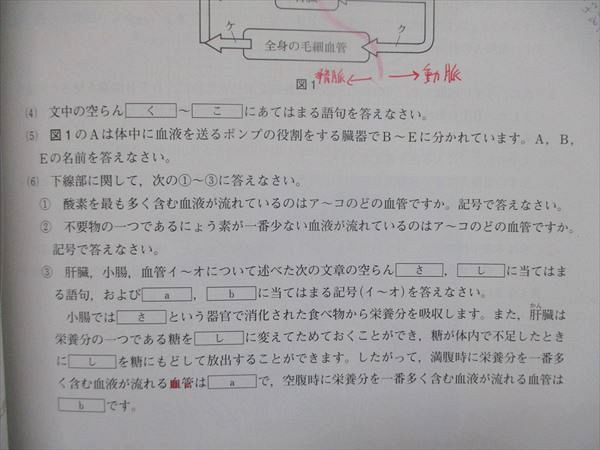 ケ
ク
全身の毛細血管
図1 静脈← →動脈
(4) 文中の空らん く ～ こ にあてはまる語句を答えなさい。
(5) 図1のAは体中に血液を送るポンプの役割をする臓器でB～Eに分かれています。A，B，
Eの名前を答えなさい。
(6) 下線部に関して，次の①～③に答えなさい。
① 酸素を最も多く含む血液が流れているのはア～コのどの血管ですか。記号で答えなさい。
② 不要物の一つであるにょう素が一番少ない血液が流れているのはア～コのどの血管ですか。
記号で答えなさい。
③ 肝臓，小腸，血管イ～オについて述べた次の文章の空らん さ ， し に当てはま
る語句，および a ， b に当てはまる記号(イ～オ)を答えなさい。
小腸では さ という器官で消化された食べ物から栄養分を吸収します。また，肝臓は
かん
栄養分の一つである糖を し に変えてためておくことができ，糖が体内で不足したとき
に し を糖にもどして放出することができます。したがって，満腹時に栄養分を一番多
く含む血液が流れる血管は a で，空腹時に栄養分を一番多く含む血液が流れる血管は
b です。